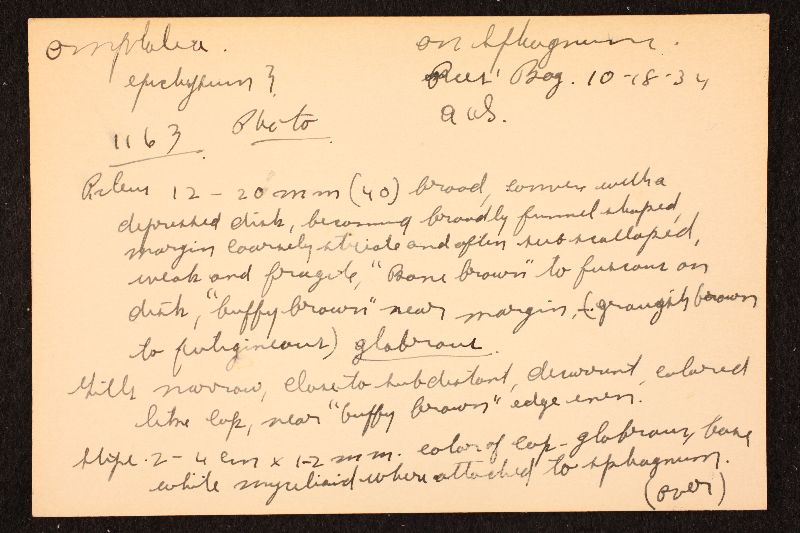 Omphalia. on Sphagnum.
epichysium? Bog. 10-18-34
1163 Photo A W S.
Pileus 12-20 mm (40) broad, convex with a
depressed disk, becoming broadly funnel shaped,
margin coarsely striate and often sub scalloped,
weak and fragile, "Bone brown" to fuscous on
disk, "buffy brown" near margin, (grayish brown
to fuligineous) glabrous.
Gills narrow, close to subdistant, decurrent, colored
like cap, near "buffy brown" edge even.
Stipe 2-4 cm x 1-2 mm. color of cap - glabrous, base
white mycelioid where attached to sphagnum.
(over)